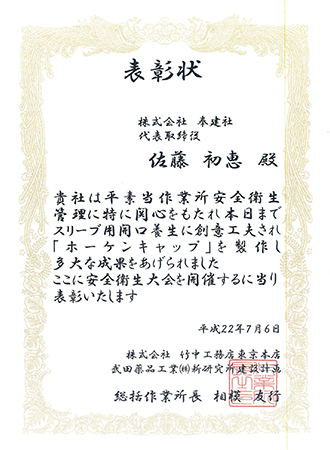 表彰状
株式会社 奉建社
代表取締役
佐藤 初惠 殿
貴社は平素当作業所安全衛生
管理に特に関心をもたれ本日まで
スリーブ用開口養生に創意工夫され
「ホーケンキャップ」を製作し
多大な成果をあげられました
ここに安全衛生大会を開催するに当り
表彰いたします
平成22年7月6日
株式会社 竹中工務店東京本店
武田薬品工業㈱新研究所建設計画
総括作業所長 相模 友行